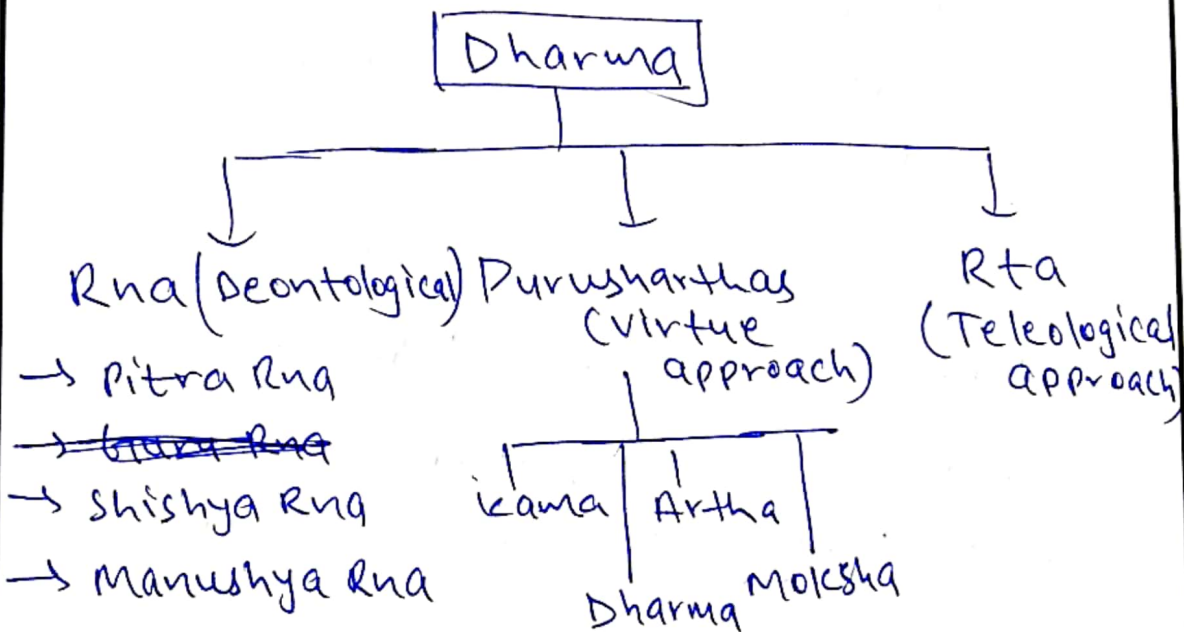 Dharma
Rna (Deontological)
→ Pitra Rna
→ Guru Rna
→ Shishya Rna
→ Manushya Rna
Purusharthas
(Virtue
approach)
Kama
Dharma
Artha
Moksha
Rta
(Teleological
approach)